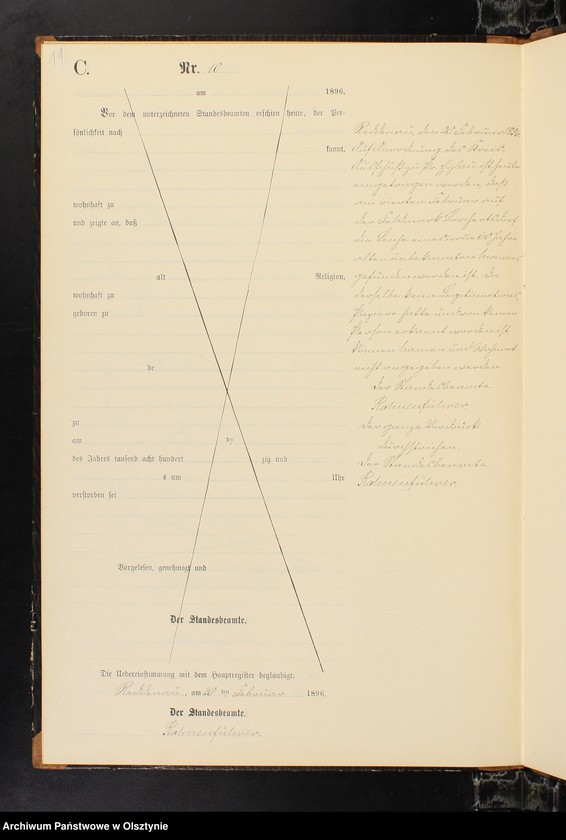 11
C.
Nr. 10
am 1896.
Vor dem unterzeichneten Standesbeamten erschien heute, der Per-
sönlichkeit nach
kannt,
wohnhaft zu
und zeigte an, daß
alt Religion,
wohnhaft zu
geboren zu
de
zu
am ten
des Jahres tausend acht hundert zig und
s um Uhr
verstorben sei
Vorgelesen, genehmigt und
Der Standesbeamte.
Die Uebereinstimmung mit dem Hauptregister beglaubigt,
Reddenau, am 20 ten Februar 1896.
Der Standesbeamte.
Reddenau, den 20 Februar 1896
Auf Anordnung des Kreis
Ausschuß zu Pr. Eylau ist heute
eingetragen worden, daß
am vierten Februar auf
der Feldmark
die Leiche eines 60 Jahre
alten unbekannten Mannes
gefunden worden ist. Da
derselbe keine Legitimations
Papiere hatte und von keiner
Person erkannt worden ist
können Namen und Wohnort
nicht angegeben werden
Der Standesbeamte
der ganze Vordruck
durchstrichen.
Der Standesbeamte
Archiwum Państwowe w Olsztynie